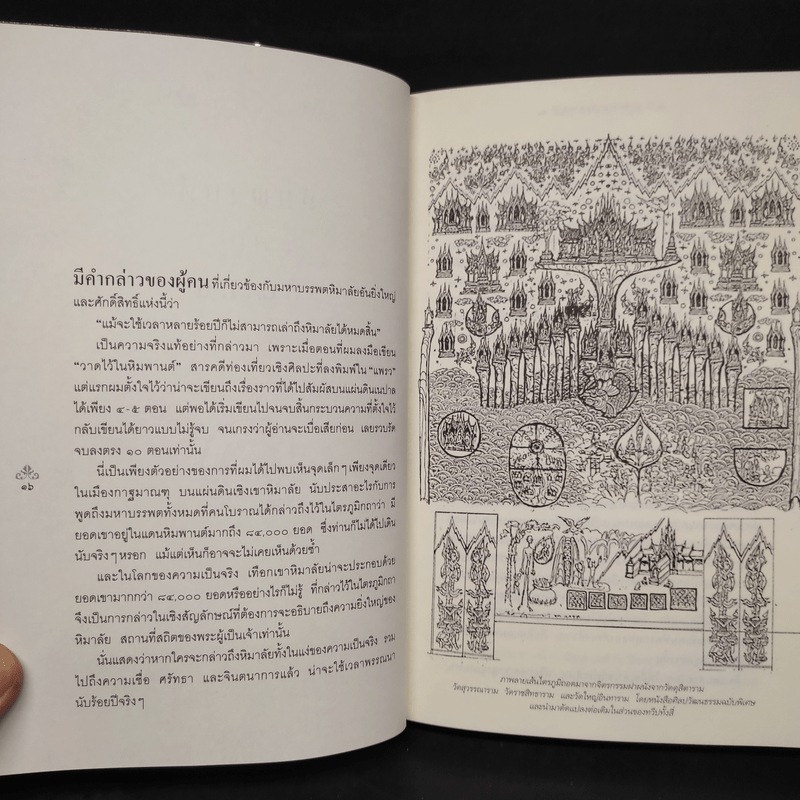 มีคำกล่าวของผู้คน ที่เกี่ยวข้องกับมหาบรรพตหิมาลัยอันยิ่งใหญ่
และศักดิ์สิทธิ์แห่งนี้ว่า
"แม้จะใช้เวลาหลายร้อยปีก็ไม่สามารถเล่าถึงหิมาลัยได้หมดสิ้น"
เป็นความจริงแท้อย่างที่กล่าวมา เพราะเมื่อตอนที่ผมลงมือเขียน
"วาดไว้ในหิมพานต์" สารคดีท่องเที่ยวเชิงศิลปะที่ลงพิมพ์ใน "แพรว"
แต่แรกผมตั้งใจไว้ว่าน่าจะเขียนถึงเรื่องราวที่ได้ไปสัมผัสบนแผ่นดินเนปาล
ได้เพียง ๔-๕ ตอน แต่พอได้เริ่มเขียนไปจนจบสิ้นกระบวนความที่ตั้งใจไว้
กลับเขียนได้ยาวแบบไม่รู้จบ จนเกรงว่าผู้อ่านจะเบื่อเสียก่อน เลยรวบรัด
จบลงตรง ๑๐ ตอนเท่านั้น
นี่เป็นเพียงตัวอย่างของการที่ผมได้ไปพบเห็นจุดเล็กๆ เพียงจุดเดียว
ในเมืองกาฐมาณฑุ บนแผ่นดินเชิงเขาหิมาลัย นับประสาอะไรกับการ
พูดถึงมหาบรรพตทั้งหมดที่คนโบราณได้กล่าวถึงไว้ในไตรภูมิกถาว่า มี
ยอดเขาอยู่ในแดนหิมพานต์มากถึง ๘๔,๐๐๐ ยอด ซึ่งท่านก็ไม่ได้ไปเดิน
นับจริงๆ หรอก แม้แต่เห็นก็อาจจะไม่เคยเห็นด้วยซ้ำ
และในโลกของความเป็นจริง เทือกเขาหิมาลัยน่าจะประกอบด้วย
ยอดเขามากกว่า ๘๔,๐๐๐ ยอดหรืออย่างไรก็ไม่รู้ ที่กล่าวไว้ในไตรภูมิกถา
จึงเป็นการกล่าวในเชิงสัญลักษณ์ที่ต้องการจะอธิบายถึงความยิ่งใหญ่ของ
หิมาลัย สถานที่สถิตของพระผู้เป็นเจ้าเท่านั้น
นั่นแสดงว่าหากใครจะกล่าวถึงหิมาลัยทั้งในแง่ของความเป็นจริง รวม
ไปถึงความเชื่อ ศรัทธา และจินตนาการแล้ว น่าจะใช้เวลาพรรณนา
นับร้อยปีจริงๆ
๑๖
ภาพลายเส้นไตรภูมิถอดมาจากจิตรกรรมฝาผนังจากวัดดุสิดาราม
วัดสุวรรณาราม วัดราชสิทธาราม และวัดใหญ่อินทาราม โดยหนังสือศิลปวัฒนธรรมฉบับพิเศษ
และนำมาดัดแปลงต่อเติมในส่วนของทวีปทั้งสี่